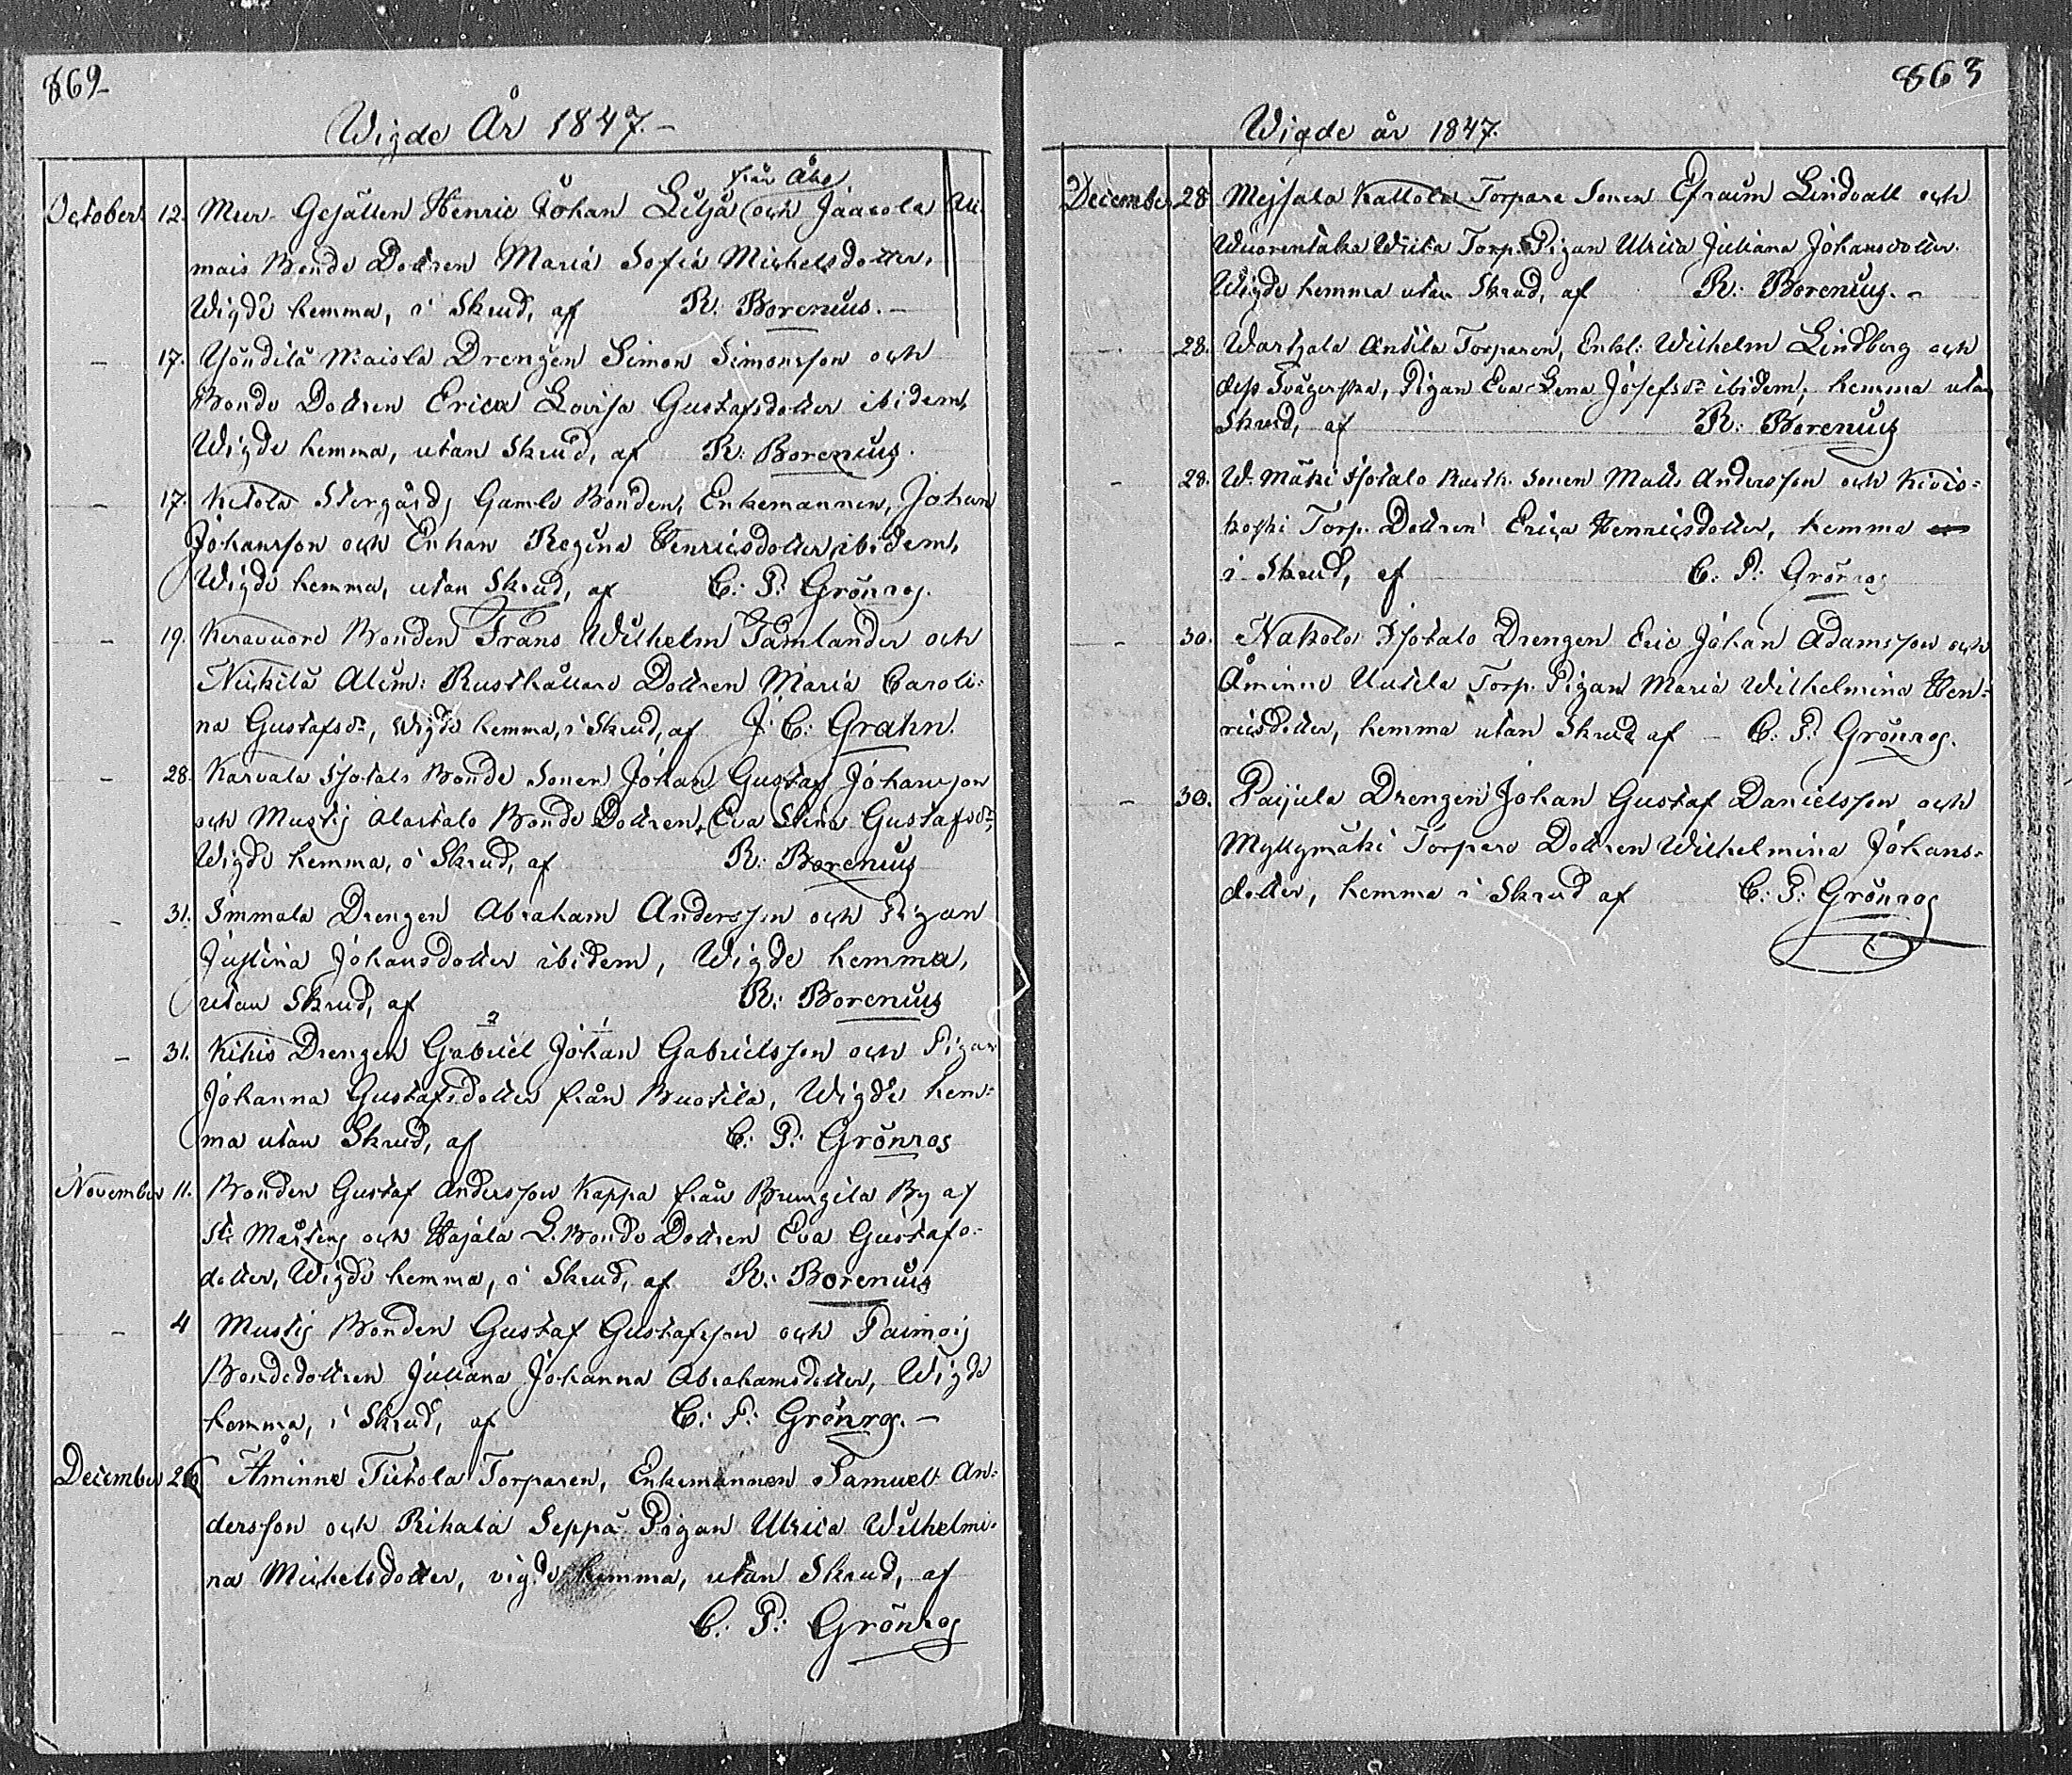 862
Wigde År 1847.
från Åbo
October 12. Mur-Gesällen Henric Johan Lilja och Jaacola Ali-
mais Bonde Dottren Maria Sofia Michelsdotter,
Wigde hemma, i Skrud, af R. Borenius.
— 17. Yöndilä Maisla Drengen Simon Simonsson och
Bonde Dottren Erica Lovisa Gustafsdotter ibidem,
Wigde hemma, utan Skrud, af R: Borenius.
— 17. Ketola Storgård, Gamle Bonden, Enkemannen, Johan
Johansson och Enkan Regina Henricsdotter ibidem,
Wigde hemma, utan Skrud, af C: P: Grönros.
— 19. Keravuore Bonden Frans Wilhelm Tamlander och
Nickilä Alim: Rusthållare Dottren Maria Caroli-
na Gustafsdr, Wigde hemma, i Skrud, af J: C: Grahn.
— 28. Karvala Isotalo Bonde Sonen Johan Gustaf Johansson
och Mustis Alastalo Bonde Dottren, Eva Stina Gustafsdr,
Wigde hemma, i Skrud, af R: Borenius
— 31. Immala Drengen Abraham Andersson och Pigan
Justina Johansdotter ibidem, Wigde hemma,
utan Skrud, af R: Borenius
2 1
— 31. Kikis Drengen Gabriel Johan Gabrielsson och Pigan
Johanna Gustafsdotter från Ruotila, Wigde hem-
ma utan Skrud, af C: P: Grönros
November 11. Bonden Gustaf Andersson Kappa från By af
St: Mårtens och Hajala L. Bonde Dottren Eva Gustafs-
dotter, Wigde hemma, i Skrud, af R: Borenius
— 4 Mustis Bonden Gustaf Gustafsson och Paimois
Bondedottren Juliana Johanna Abrahamsdotter, Wigde
hemma, i Skrud, af C: P: Grönros. —
December 26 Åminne Tietola Torparen, Enkemannen Samuel An-
dersson och Rikala Seppä Pigan Ulrica Wilhelmi-
na Michelsdotter, vigde hemma, utan Skrud, af
C: P: Grönros
863
Wigde år 1847.
December 28 Mejsala Kallola Torpare Sonen Efraim Lindvall och
Wuorentaka Wiita Torp. Pigan Ulrica Juliana Johansdotter.
Wigde hemma utan Skrud, af R: Borenius. —
— 28. Wartsala Antila Torparen, Enkl: Wilhelm Lindberg och
dess Svägerska, Pigan Eva Lena Josefsdr ibidem, hemma utan
Skrud, af R: Borenius
— 28. W. Mäki Isotalo Rusth. Sonen Matts Andersson och Kivis-
koski Torp. Dottren Erica Henricsdotter, hemma
i Skrud, af C: P: Grönros
— 30. Nakola Isotalo Drengen Eric Johan Adamsson och
Åminne Uutela Torp. Pigan Maria Wilhelmina Hen-
ricsdotter, hemma utan Skrud af — C: P: Grönros.
— 30. Paijula Drengen Johan Gustaf Danielsson och
Myllymäki Torpare Dottren Wilhelmina Johans-
dotter, hemma i Skrud af C: P: Grönros